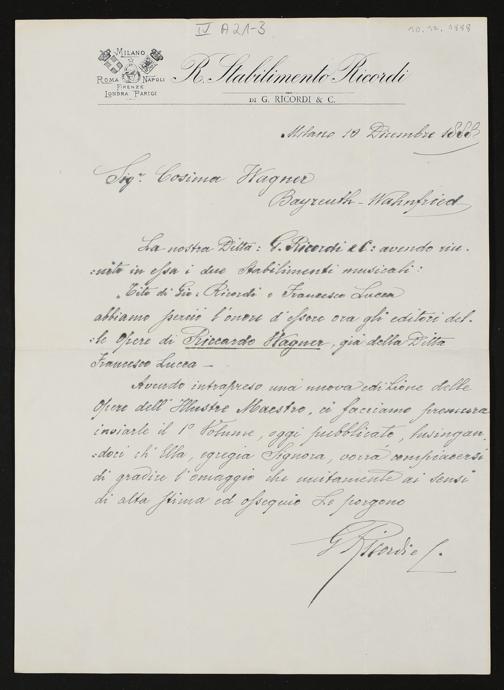 IV A21-3
10.12.1888
MILANO
ROMA NAPOLI
FIRENZE
LONDRA PARIGI
R. Stabilimento Ricordi
DI G. RICORDI & C.
Milano 10 Dicembre 1888
Sigra Cosima Wagner
Bayreuth-Wahnfried
La nostra Ditta: G. Ricordi e C: avendo riu-
-nito in essa i due Stabilimenti musicali:
Tito di Gio: Ricordi e Francesco Lucca
abbiamo perciò l'onore d'essere ora gli editori del-
-le Opere di Riccardo Wagner, già della Ditta
Francesco Lucca —
Avendo intrapreso una nuova edizione delle
Opere dell'Illustre Maestro, ci facciamo premura
inviarle il 1º Volume, oggi pubblicato, lusingan-
-doci ch'Ella, egregia Signora, vorrà compiacersi
di gradire l'omaggio che unitamente ai sensi
di alta stima ed ossequio Le porgono
G Ricordi e C.